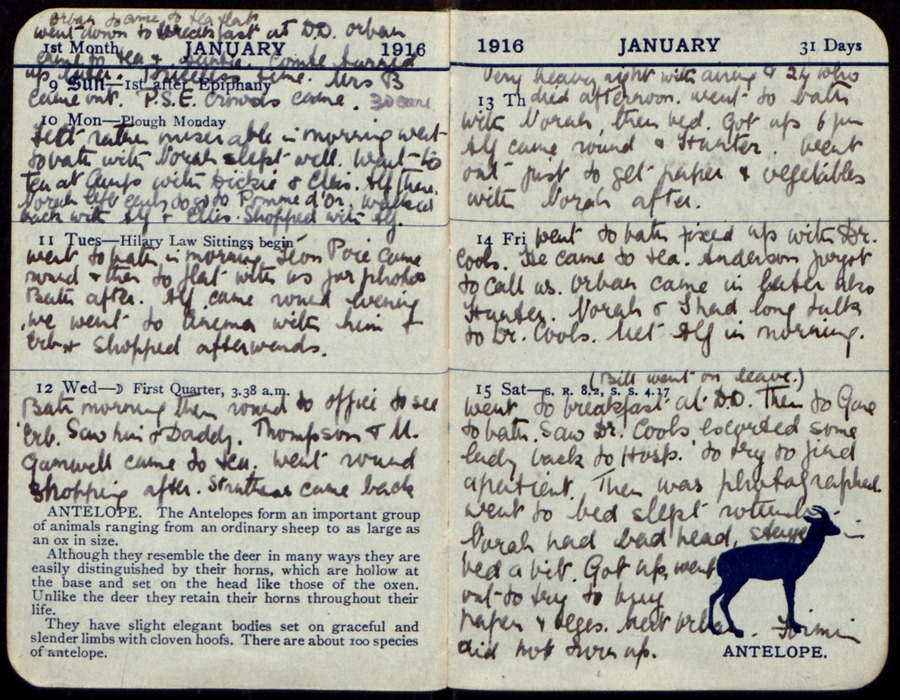 Urban to came to tea flat
went down to breakfast at D.D. Urban
1st Month JANUARY 1916
came to tea & Combe turned
up later. time. Mrs B
9 Sun—1st after Epiphany
came out. P.S.E. Crowds came.
10 Mon—Plough Monday
Felt rather miserable in morning went
to bath with Norah slept well. Went to
tea at Camps with Dickie & Ellis. Alf there.
Norah left early to go to Pomme d'Or. Walked
back with Alf & Ellis. Shopped with Alf.
11 Tues—Hilary Law Sittings begin
went to bath in morning Leon Poire came
round & then to flat with us for photos
Bath after. Alf came round evening
we went to Cinema with him &
Urb & Shopped afterwards.
12 Wed—☽ First Quarter, 3.38 a.m.
Bath morning then round to office to see
Urb. Saw him & Daddy. Thompson & M.
Gamwell came to tea. Went round
shopping after. Struthers came back
ANTELOPE. The Antelopes form an important group
of animals ranging from an ordinary sheep to as large as
an ox in size.
Although they resemble the deer in many ways they are
easily distinguished by their horns, which are hollow at
the base and set on the head like those of the oxen.
Unlike the deer they retain their horns throughout their
life.
They have slight elegant bodies set on graceful and
slender limbs with cloven hoofs. There are about 100 species
of antelope.
1916 JANUARY 31 Days
Very heavy night with & 24 who
13 Th died afternoon. Went to bath
with Norah, then bed. Got up 6 pm
Alf came round & Hunter. Went
out just to get paper & vegetables
with Norah after.
14 Fri went to bath fixed up with Dr.
Cools. He came to tea. Anderson forgot
to call us. Urban came in later also
Hunter. Norah & I had long talk
to Dr. Cools. Met Alf in morning.
(Bill went on leave.)
15 Sat—S. R. 8.2, S. S. 4.17
went to breakfast at D.D. Then to Gare
to bath. Saw Dr. Cools escorted some
lady back to Hosp. to try to find
apatient. Then was photographed
went to bed slept
Norah had bad head, stayed in
bed a bit. Got up, went
out to try to buy
paper & veges. Met Urban. Firmin
did not turn up.
ANTELOPE.